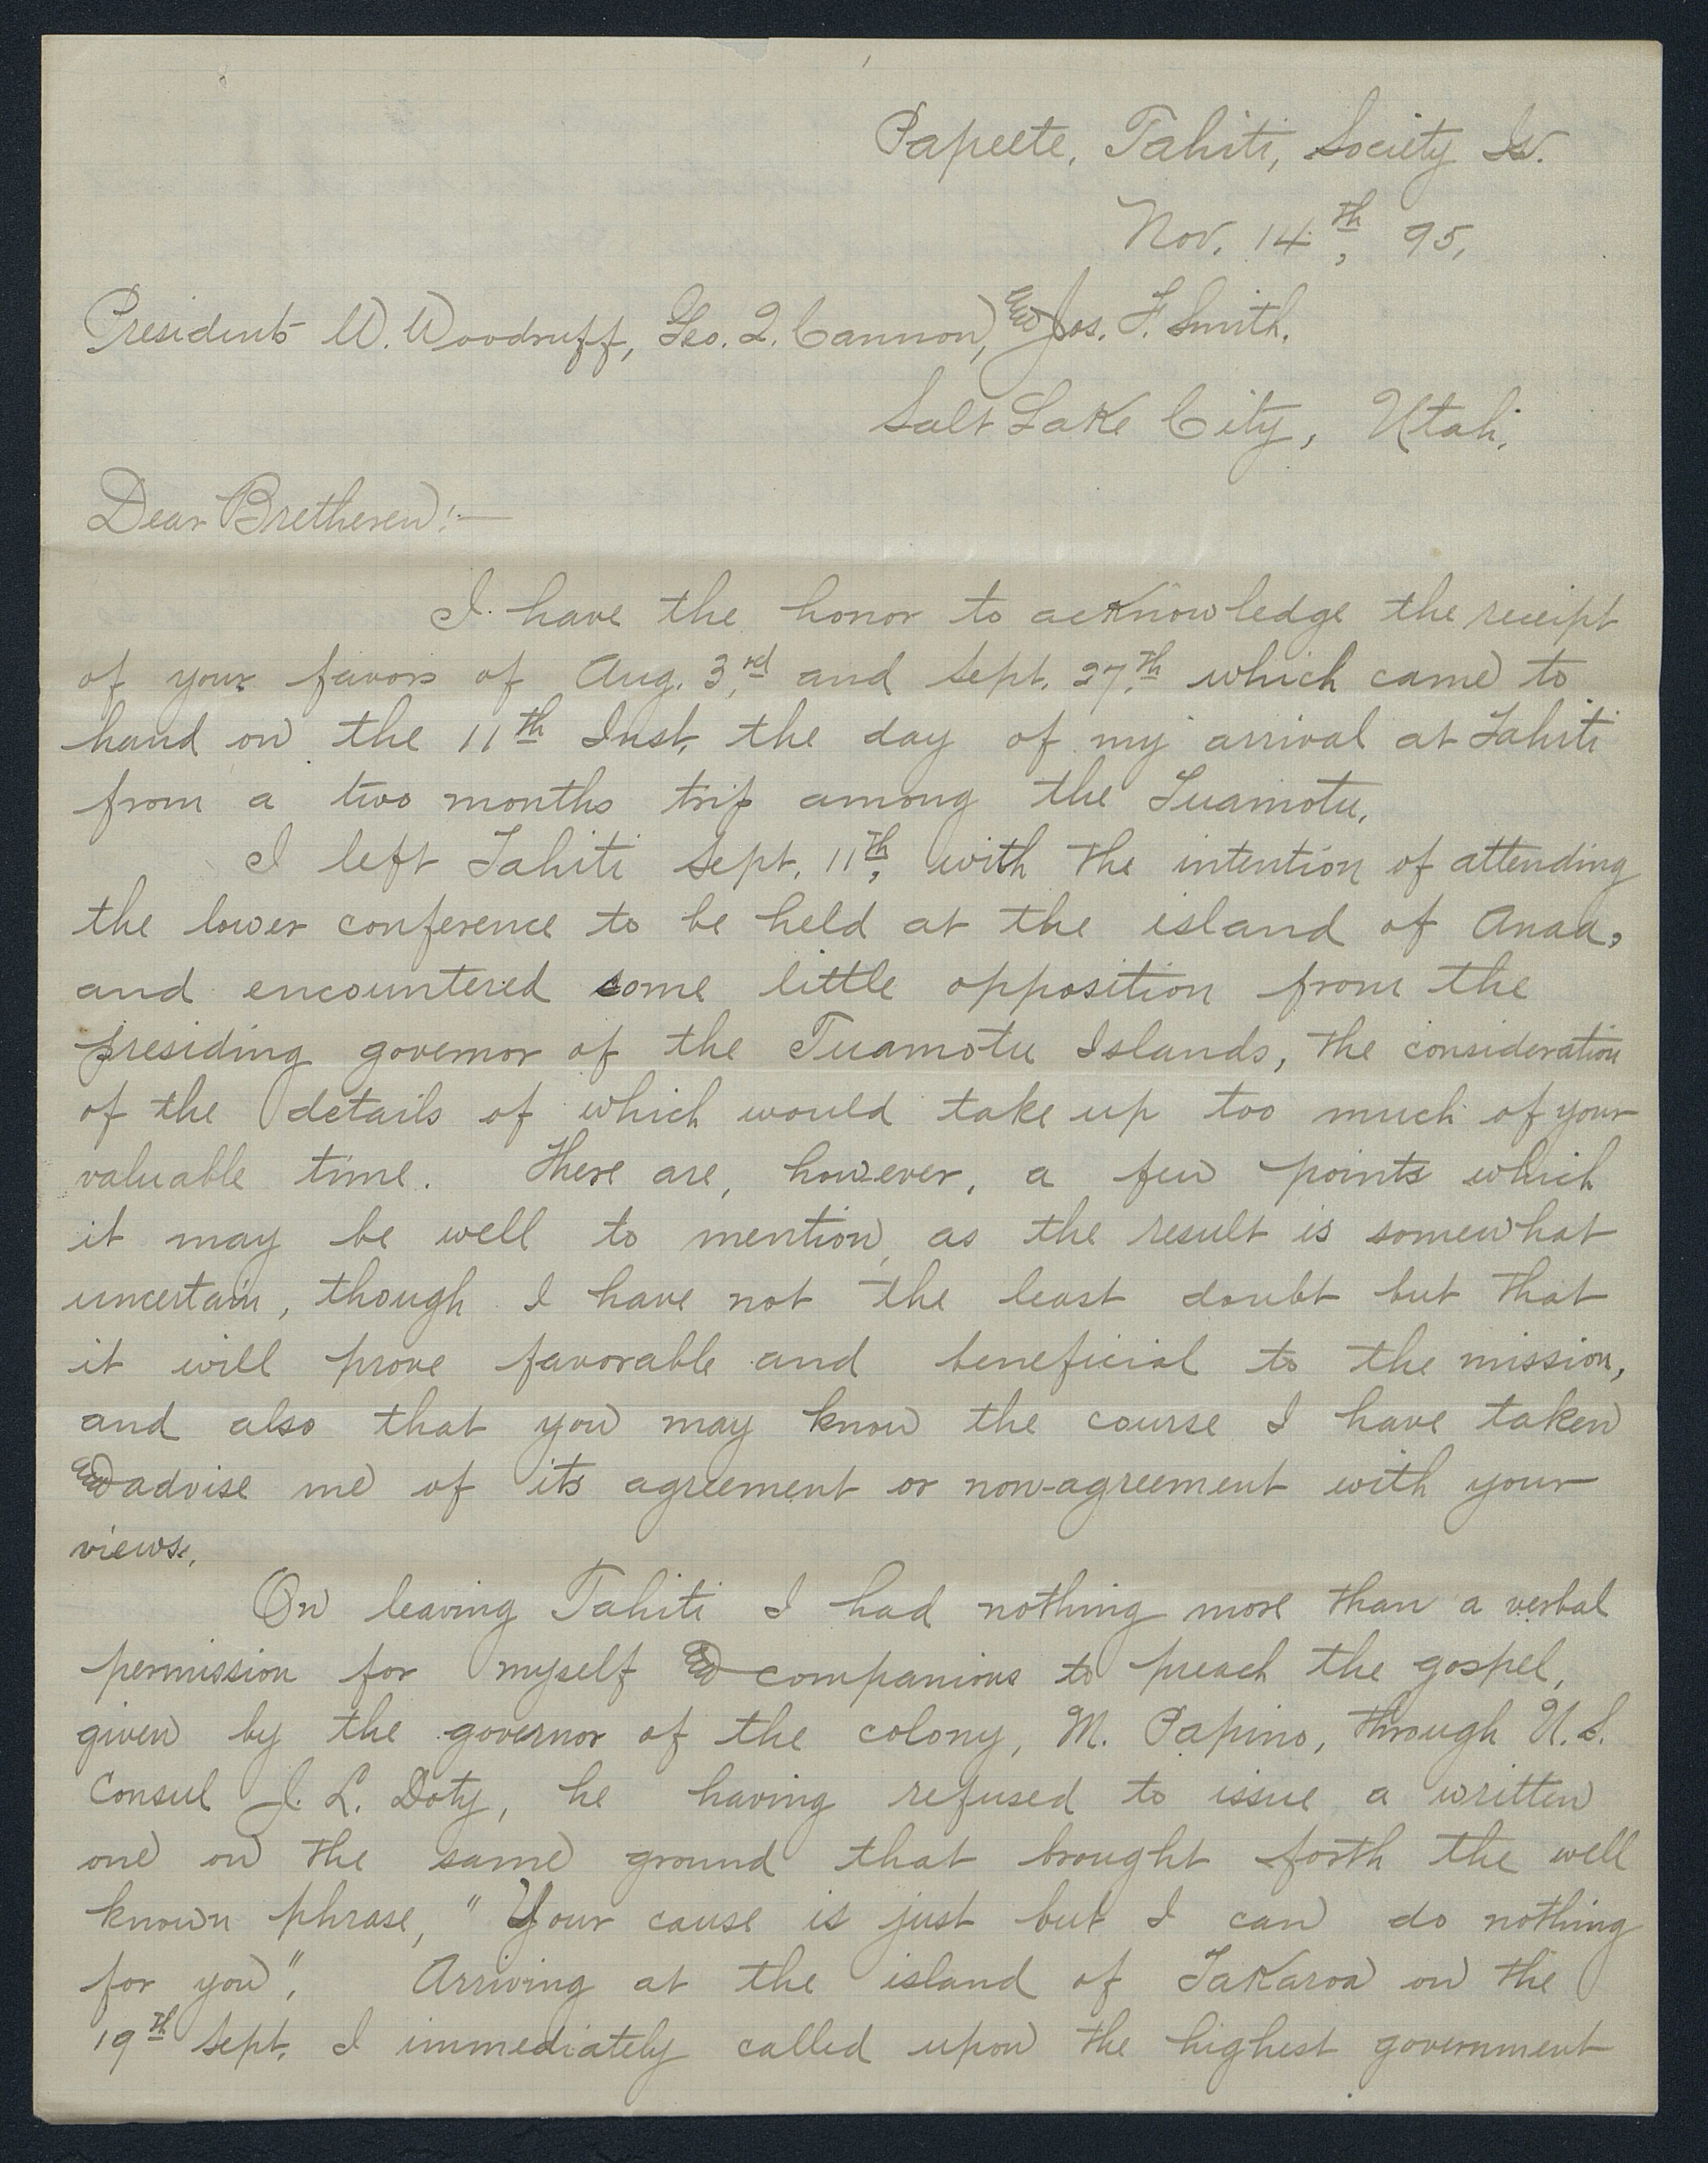 Papeete, Tahiti, Society Is.
Nov. 14th, 95,
Presidents W. Woodruff, Geo. Q. Cannon, and Jos. F. Smith.
Salt Lake City, Utah.
Dear Bretheren:—
I have the honor to acknowledge the receipt
of your favors of Aug. 3rd, and Sept. 27th, which came to
hand on the 11th Inst, the day of my arrival at Tahiti
from a two months trip among the Tuamotu.
I left Tahiti Sept. 11th, with the intention of attending
the lower conference to be held at the island of Anaa,
and encountered some little opposition from the
presiding governor of the Tuamotu Islands, the consideration
of the details of which would take up too much of your
valuable time. There are, however, a few points which
it may be well to mention, as the result is somewhat
uncertain, though I have not the least doubt but that
it will prove favorable and beneficial to the mission,
and also that you may know the course I have taken
and advise me of its agreement or non-agreement with your
views.
On leaving Tahiti I had nothing more than a verbal
permission for myself and companions to preach the gospel,
given by the governor of the colony, M. Papino, through U.S.
Consul J. L. Doty, he having refused to issue a written
one on the same ground that brought forth the well
known phrase, "Your cause is just but I can do nothing
for you". Arriving at the island of Takaroa on the
19th Sept. I immediately called upon the highest government